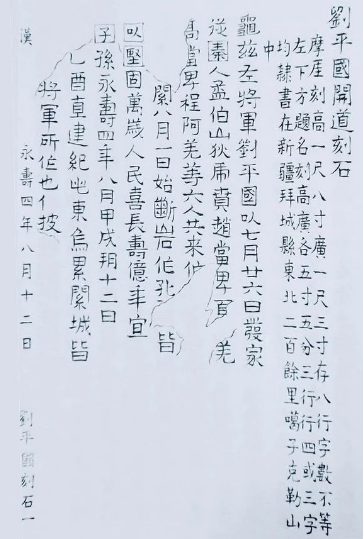 劉平國開道刻石
摩厓刻高一尺八寸廣一尺三寸存八行字數不等
左下方題名刻高廣各五寸五分三行行四或三字
均隸書在新疆拜城縣東北二百餘里噶子克勒山
中
龜茲左將軍劉平國以七月廿六日發家
從秦人孟伯山狄虎賁趙當卑夏羌
當卑程阿羌等六人共來作
關八月一日始斷岩作孔 皆
以堅固萬歲人民喜長壽億年宜
子孫永壽四年八月甲戌朔十二日
乙酉直建紀此東烏累關城皆
將軍所作也 披
漢 永壽四年八月十二日 劉平國刻石一